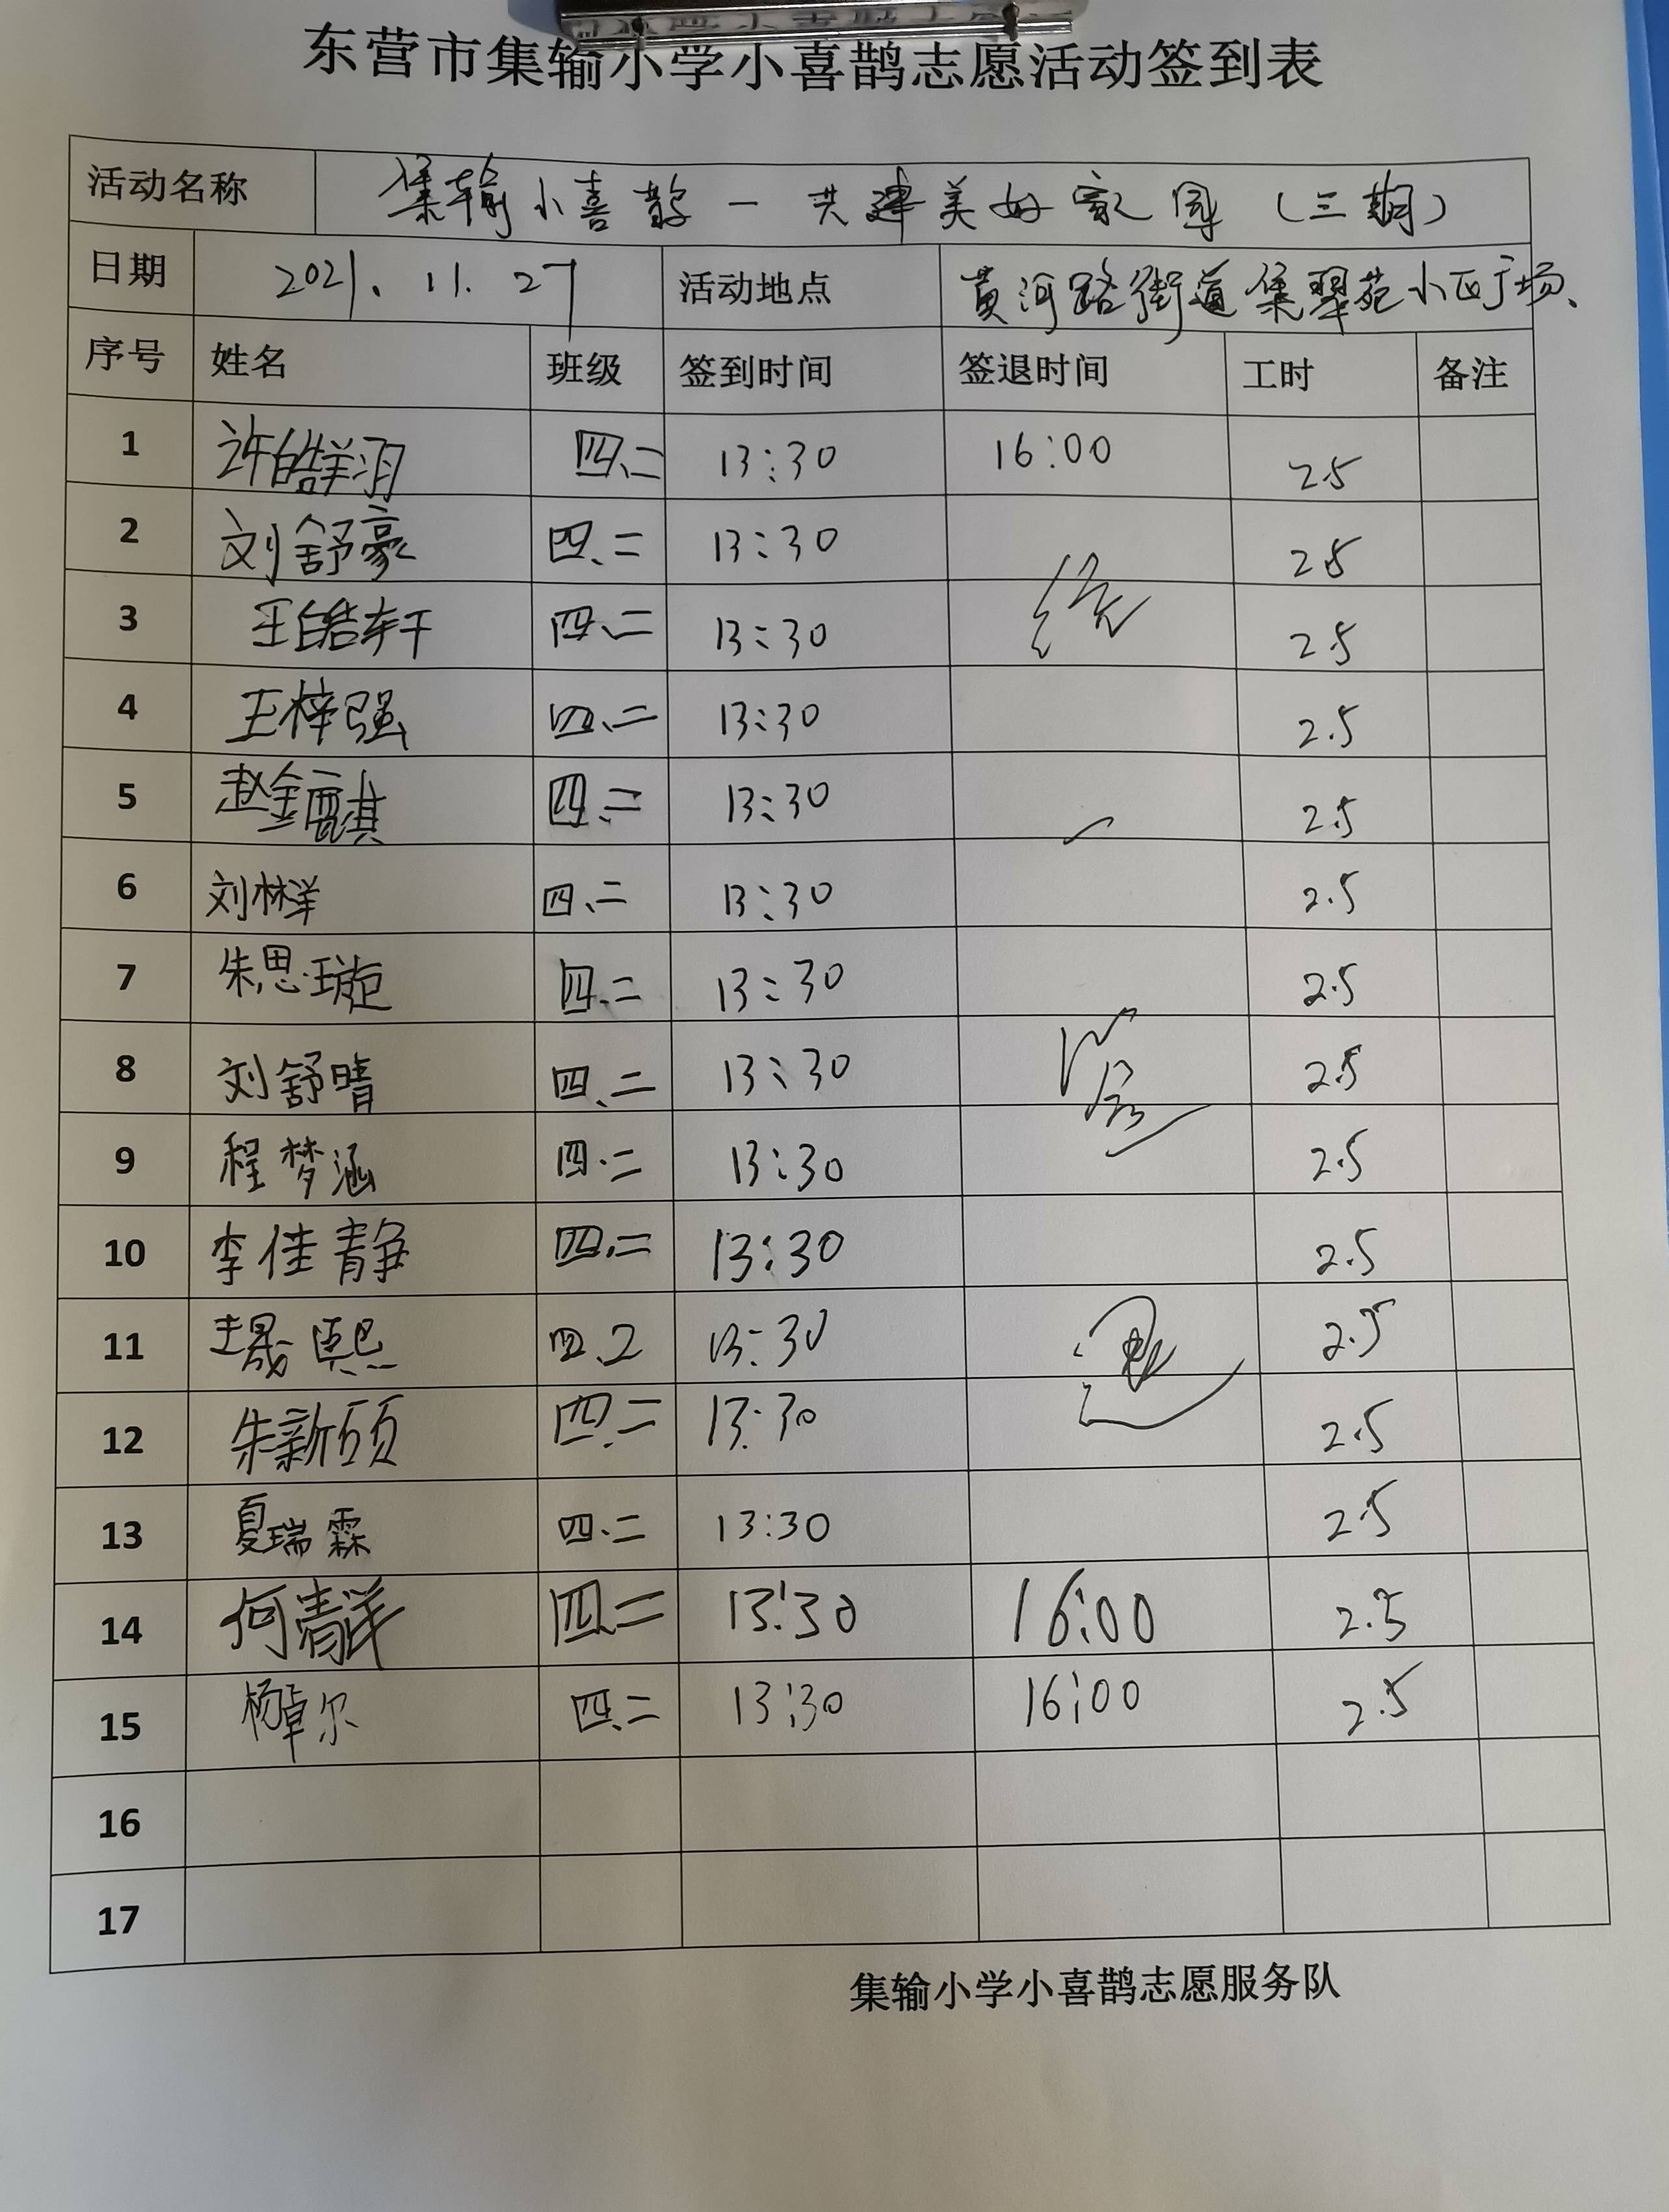 东营市集输小学小喜鹊志愿活动签到表
活动名称 集输小喜鹊一共建美好家园（三期）
日期 2021.11.27 活动地点 黄河路街道集翠苑小区广场、
序号 姓名 班级 签到时间 签退时间 工时 备注
1 许皓羽 四、二 13:30 16:00 2.5
2 刘舒豪 四、二 13:30 2.5
3 王皓轩 四、二 13:30 2.5
4 王梓强 四、二 13:30 2.5
5 赵金麒 四、二 13:30 2.5
6 刘林洋 四、二 13:30 2.5
7 朱思璇 四、二 13:30 2.5
8 刘舒晴 四、二 13:30 2.5
9 程梦涵 四、二 13:30 2.5
10 李佳静 四、二 13:30 2.5
11 王晟熙 四、2 13:30 2.5
12 朱新硕 四、二 13:30 2.5
13 夏瑞霖 四、二 13:30 2.5
14 何清洋 四、二 13:30 16:00 2.5
15 杨卓尔 四、二 13:30 16:00 2.5
16
17
集输小学小喜鹊志愿服务队